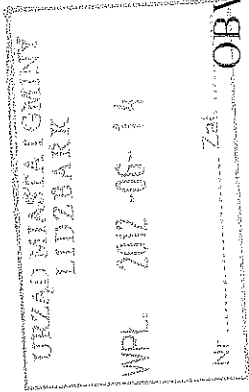 URZĄD MIASTA I GMINY
LIDZBARK
WPŁ. 2012 -06- 14
Nr ............ Zał. ............
OBW